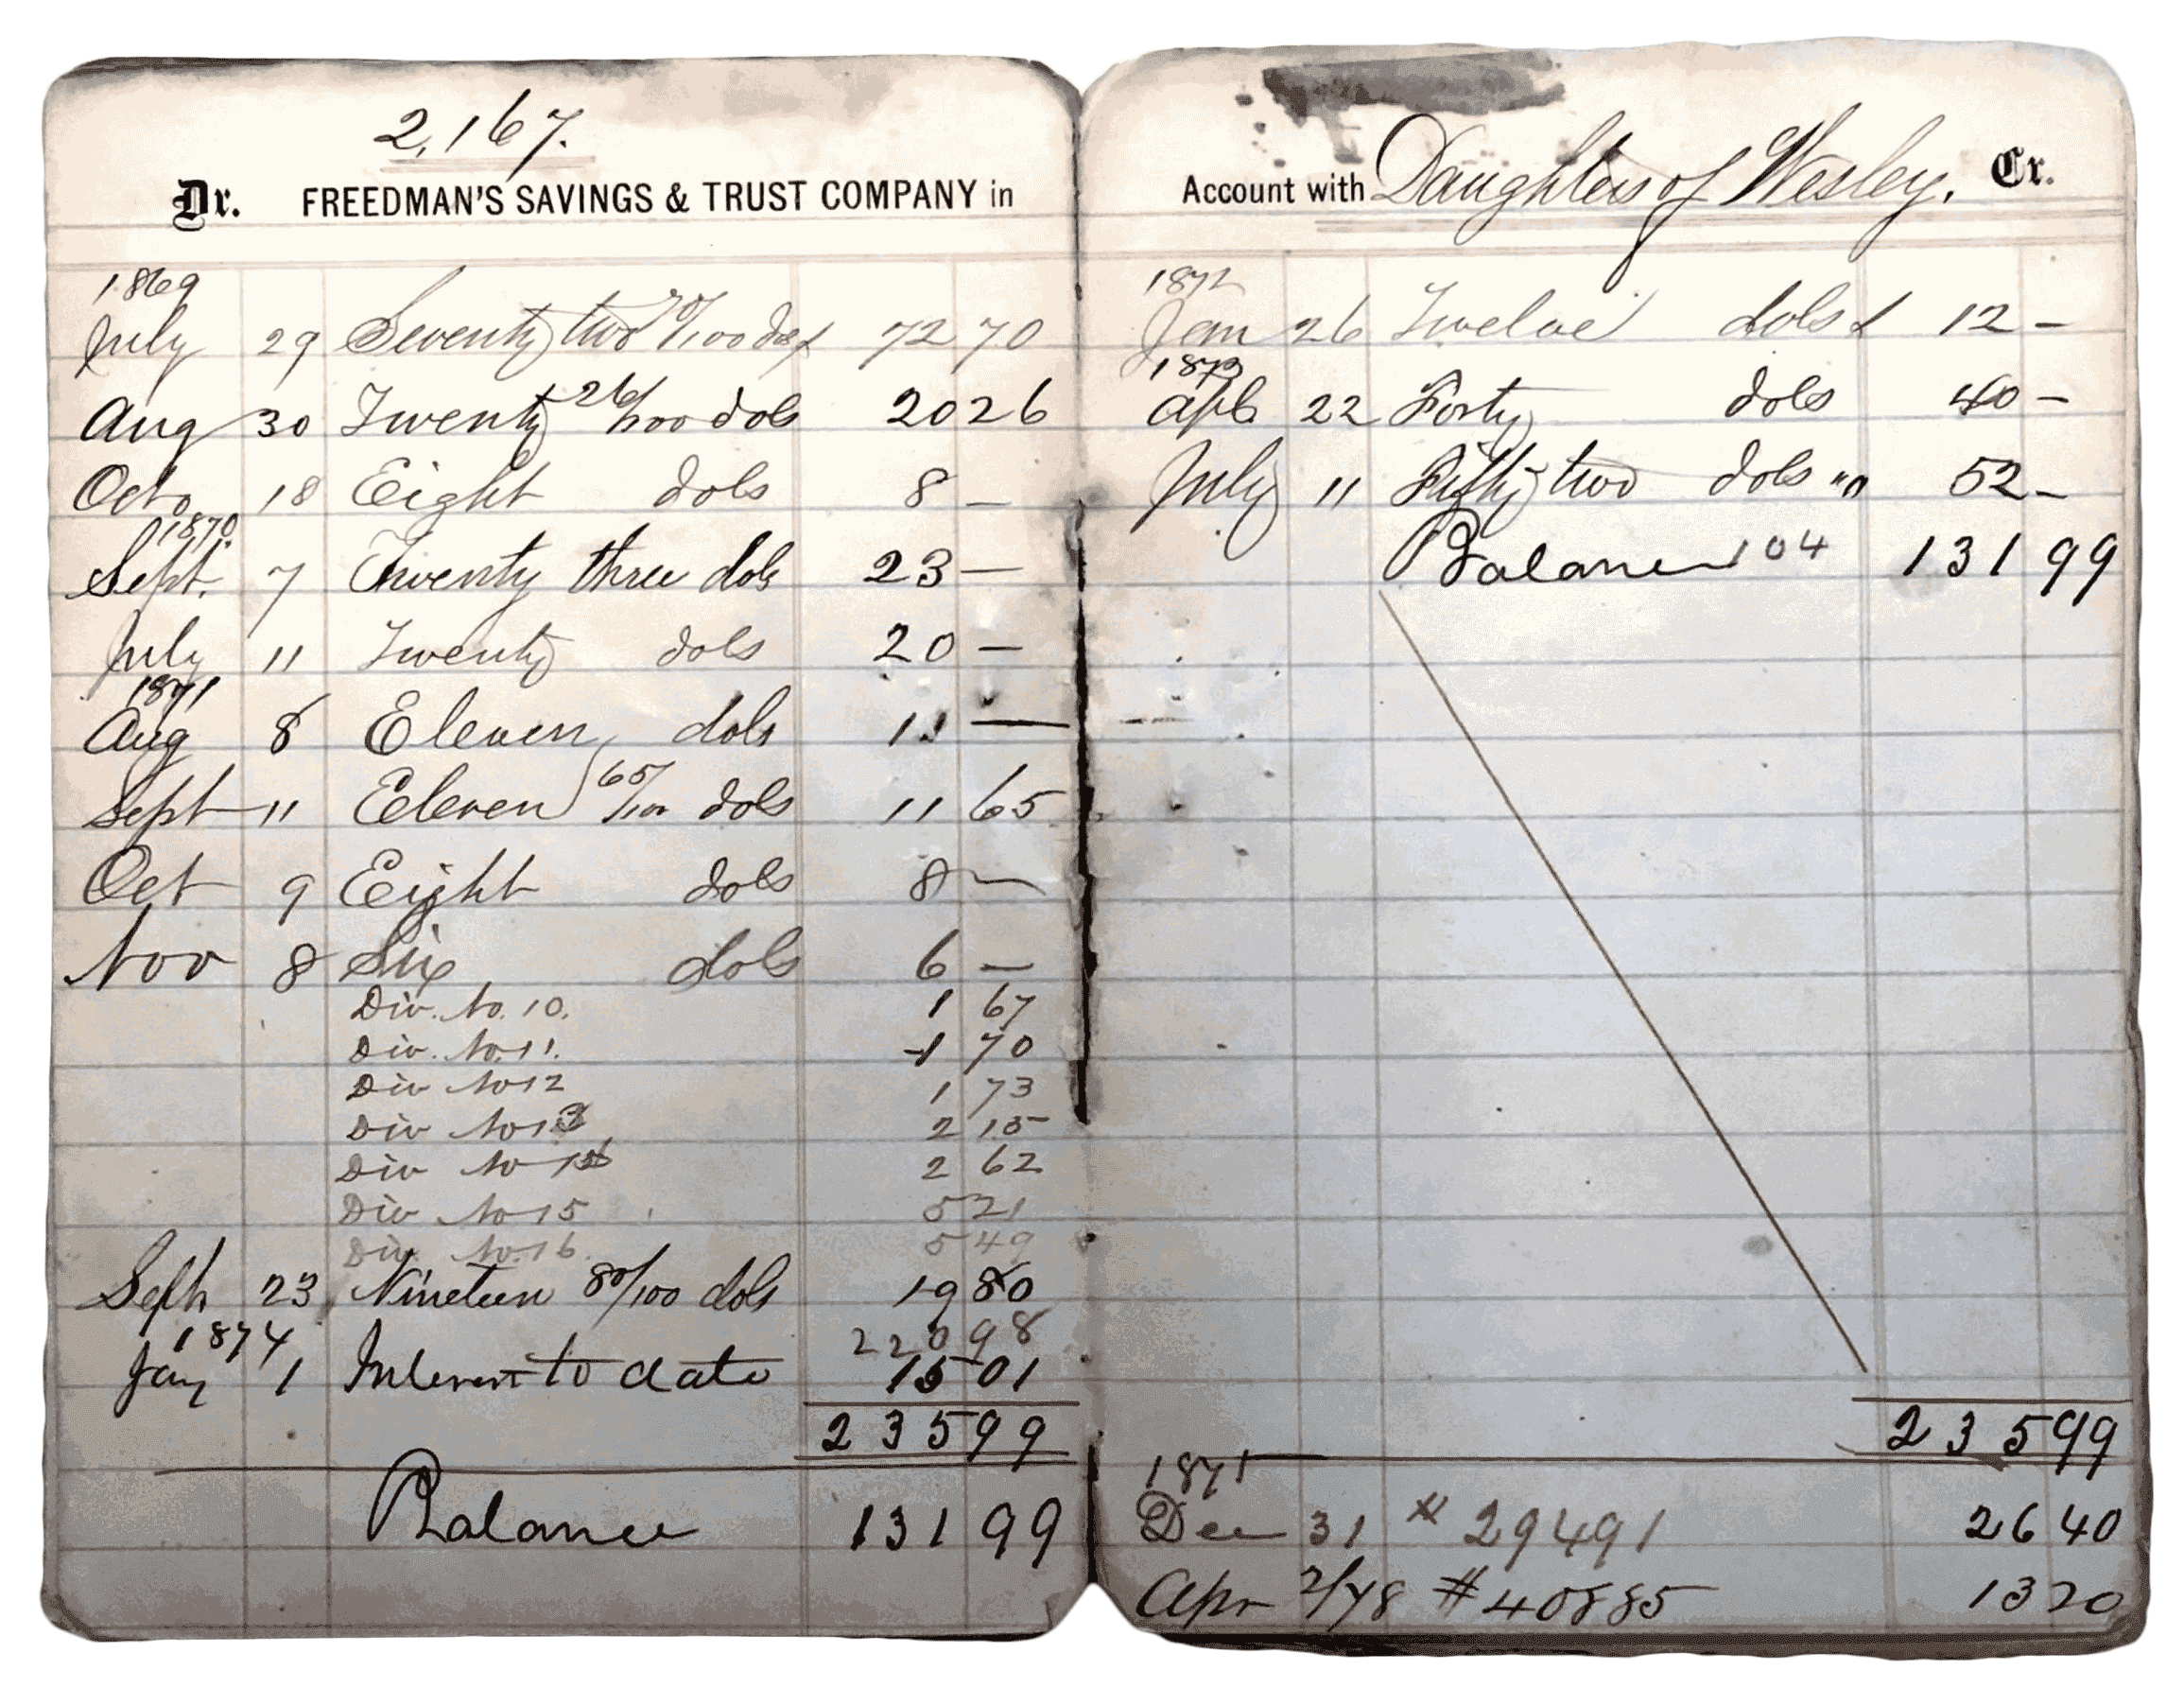 2,167.
Dr. FREEDMAN'S SAVINGS & TRUST COMPANY in
1869
July 29 Seventy two 70/100 dols 72 70
Aug 30 Twenty 26/100 dols 20 26
Oct 18 Eight dols 8 —
1870.
Sept. 7 Twenty three dols 23 —
July 11 Twenty dols 20 —
1871
Aug 8 Eleven dols 11 —
Sept 11 Eleven 65/100 dols 11 65
Oct 9 Eight dols 8 —
Nov 8 Six dols 6 —
Div. No. 10. 1 67
Div. No. 11. 1 70
Div No 12 1 73
Div No 13 2 15
Div No 14 2 62
Div No 15 5 21
Div. No. 16. 5 49
Sept 23 Nineteen 80/100 dols 19 80
220 98
1874
Jany 1 Interest to date 15 01
235 99
Balance 131 99
Account with Daughters of Wesley. Cr.
1872
Jan 26 Twelve dols 12 —
1873
Apl 22 Forty dols 40 —
July 11 Fifty two dols " 52 —
Balance 104 131 99
235 99
Dec 31 # 29491 26 40
Apr 2/78 # 40885 13 20